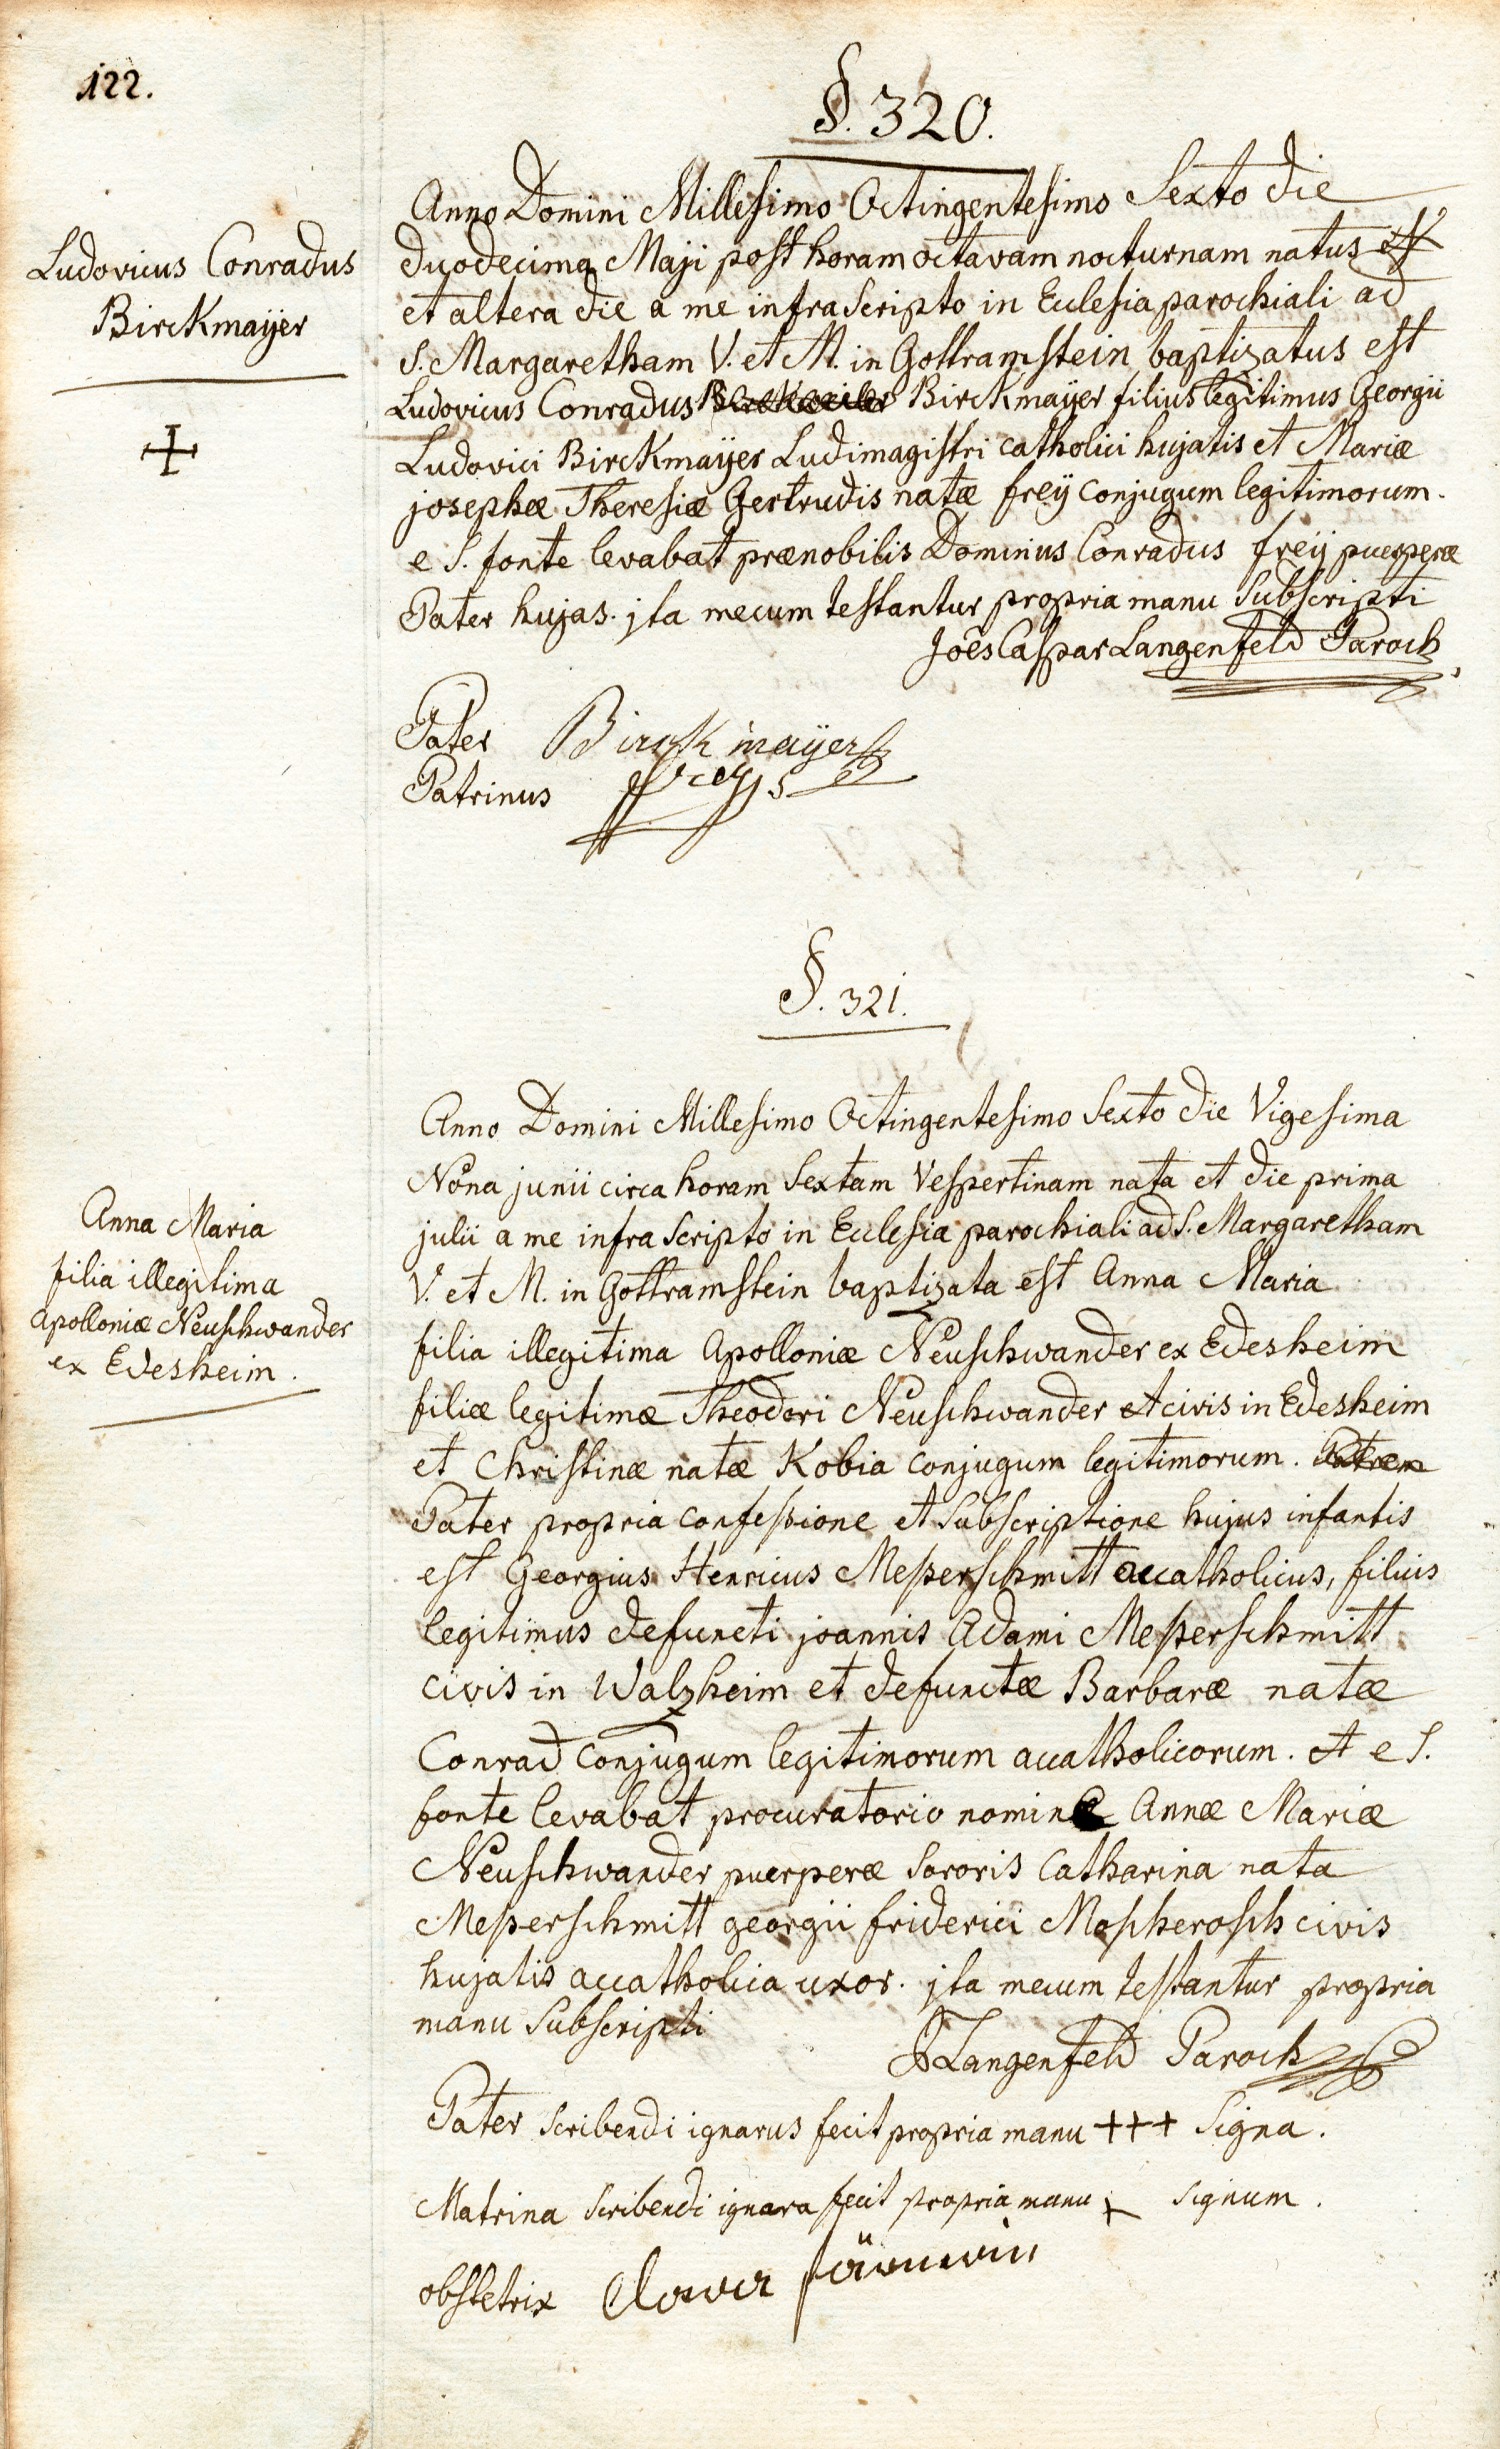 122.
§. 320.
Ludovicus Conradus
Birckmayer
Anno Domini Millesimo Octingentesimo Sexto die
duodecima Maji post horam octavam nocturnam natus
et altera die a me infra Scripto in Ecclesia parochiali ad
S. Margaretham V. et M. in Gottramstein baptizatus est
Ludovicus Conradus Birckmaÿer filius legitimus Georgii
Ludovici Birckmaÿer Ludimagistri catholici hujatis et Mariæ
josephæ Theresiæ Gertrudis natæ freÿ conjugum legitimorum.
e S. fonte levabat prænobilis Dominus Conradus freÿ puerperæ
Pater hujas. jta mecum testantur propria manu Subscripti
Joês Caspar Langenfeld Paroch
Pater Birckmaÿer
Patrinus freÿ
§. 321.
Anna Maria
filia illegitima
Apolloniæ Neuschwander
ex Edesheim.
Anno Domini Millesimo Octingentesimo Sexto die Vigesima
Nona junii circa horam Sextam Vespertinam nata et die prima
julii a me infra Scripto in Ecclesia parochiali ad S. Margaretham
V. et M. in Gottramstein baptizata est Anna Maria
filia illegitima Apolloniæ Neuschwander ex Edesheim
filiæ legitimæ Theodori Neuschwander et civis in Edesheim
et Christinæ natæ Kobia conjugum legitimorum.
Pater propria confeßione et Subscriptione hujus infantis
est Georgius Henricus Meßerschmitt accatholicus, filius
legitimus defuncti joannis Adami Meßerschmitt
civis in Walzheim et defunctæ Barbaræ natæ
Conrad conjugum legitimorum accatholicorum. et e S.
fonte levabat procuratorio nomine Annæ Mariæ
Neuschwander puerperæ Sororis Catharina nata
Meßerschmitt georgii friderici Moscherosch civis
hujatis accatholica uxor. jta mecum testantur propria
manu Subscripti
Langenfeld Paroch
Pater Scribendi ignarus fecit propria manu +++ Signa.
Matrina Scribendi ignara fecit propria manu + Signum.
obstetrix